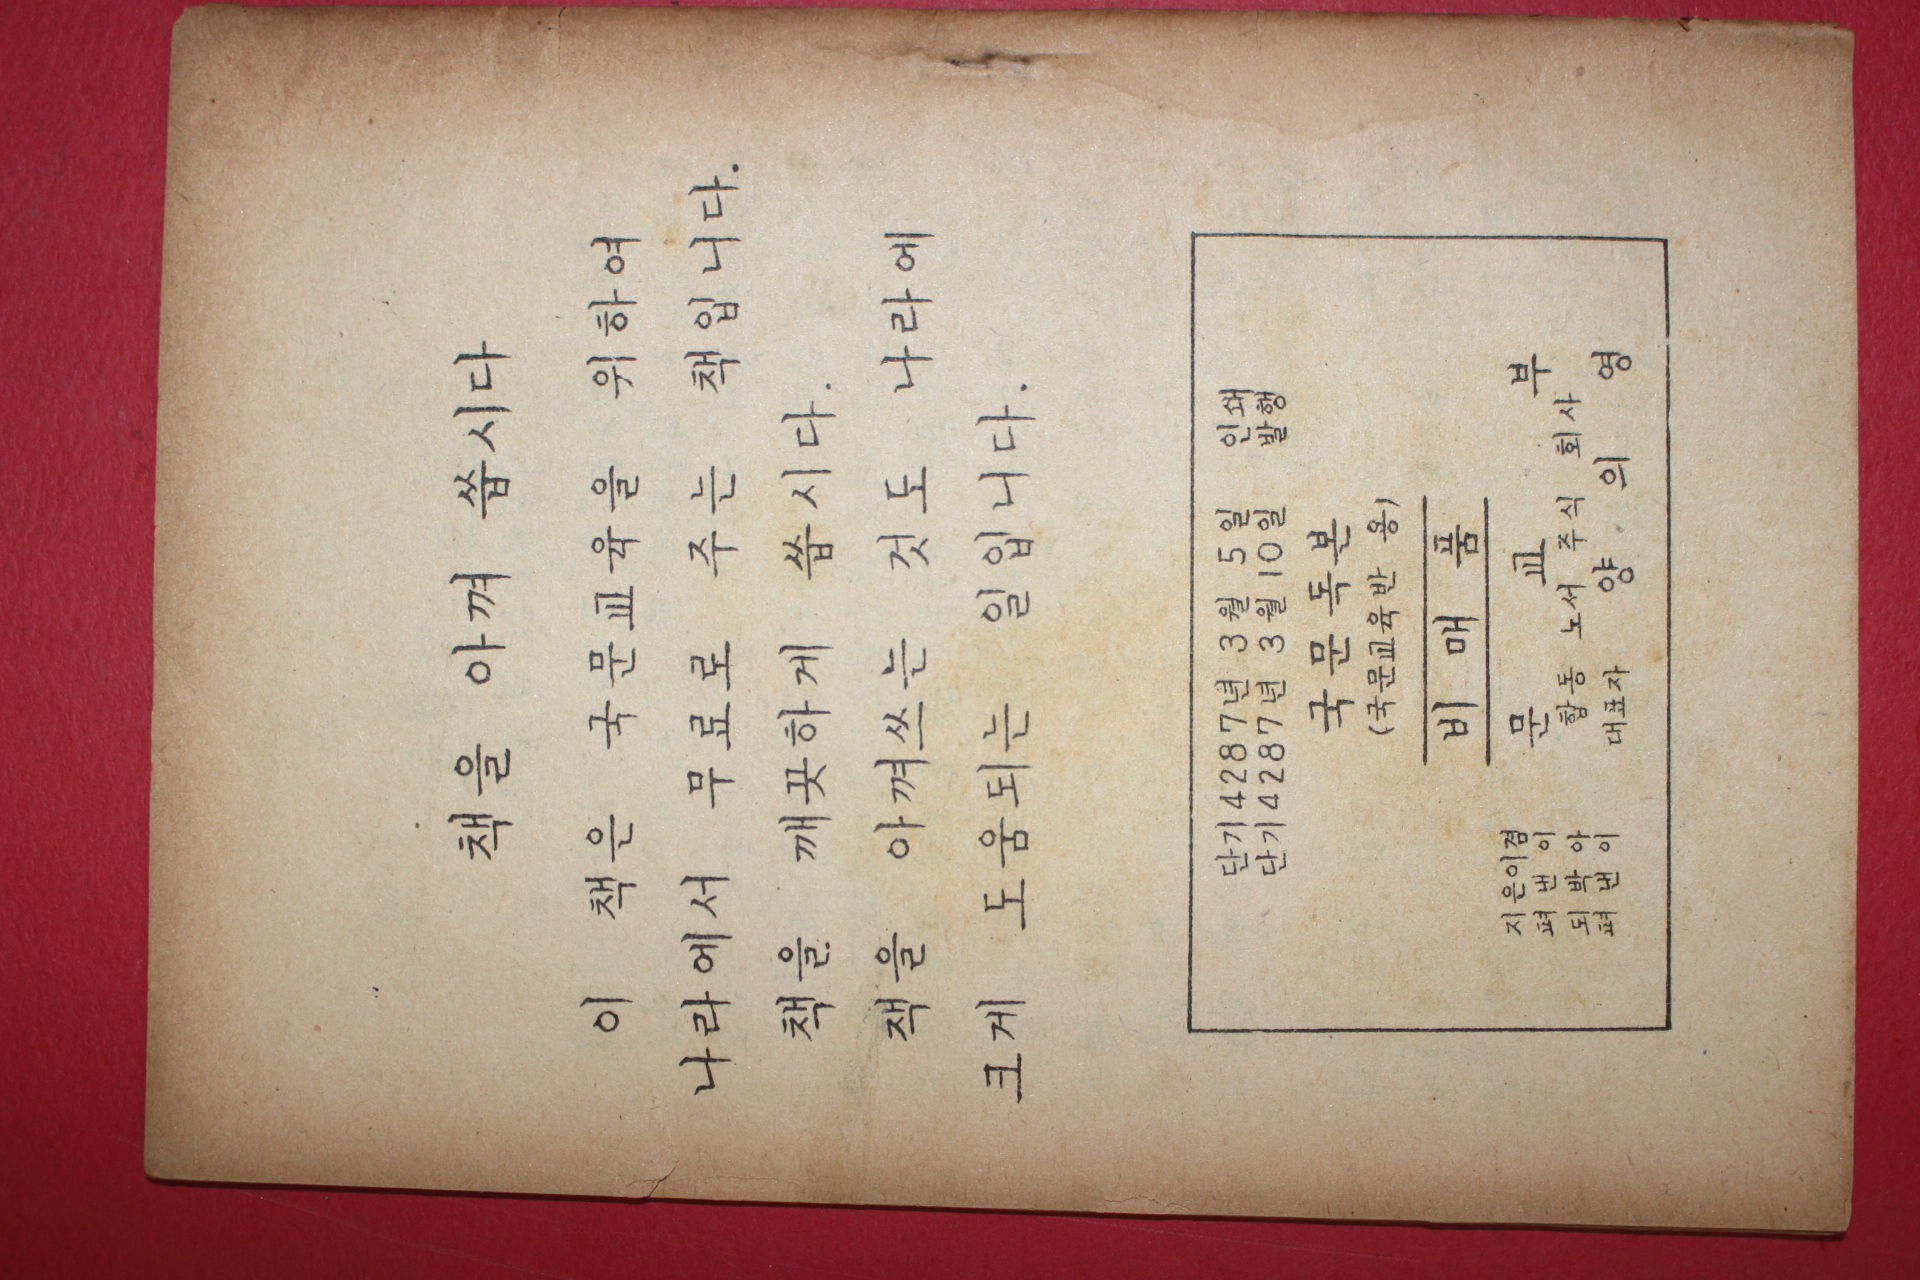 책을 아껴 씁시다
이 책은 국문교육을 위하여
나라에서 무료로 주는 책입니다.
책을 깨끗하게 씁시다.
책을 아껴쓰는 것도 나라에
크게 도움되는 일입니다.
단기 4287년 3월 5일 인쇄
단기 4287년 3월 10일 발행
국문독본
(국문교육반 용)
비매품
지은이겸
펴낸이 문교부
되박아 합동노서주식회사
펴낸이 대표자 양의영